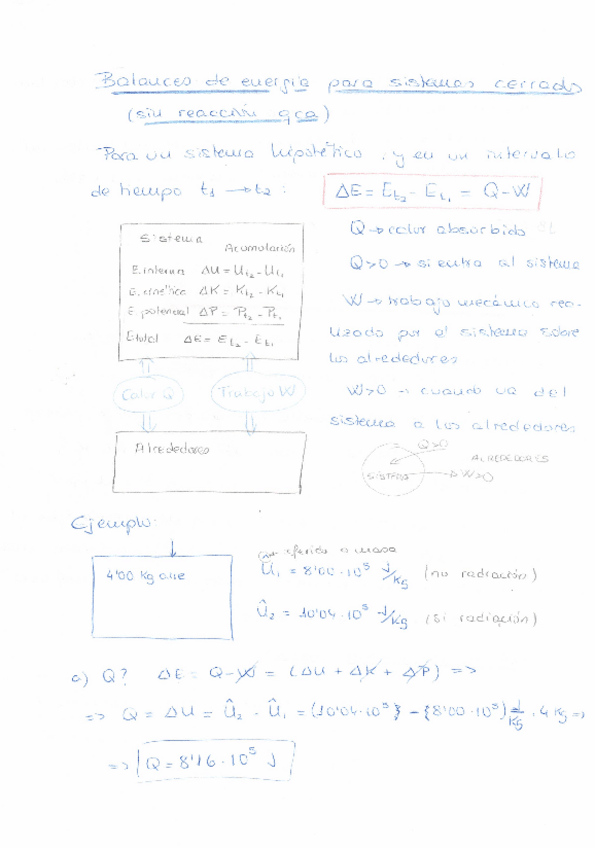 Balances de energía para sistemas cerrados
(sin reacción qca)
Para un sistema hipotético, y en un intervalo
de tiempo t₁ → t₂ :
ΔE = E_t₂ - E_t₁ = Q - W
Sistema
Acumulación
E. interna ΔU = U_t₂ - U_t₁
E. cinética ΔK = K_t₂ - K_t₁
E. potencial ΔP = P_t₂ - P_t₁
E total ΔE = E_t₂ - E_t₁
Calor Q
Trabajo W
Alrededores
Q → calor absorbido
Q>0 → si entra al sistema
W → trabajo mecánico rea-
lizado por el sistema sobre
los alrededores
W>0 → cuando va del
sistema a los alrededores
Q>0
ALREDEDORES
SISTEMA
W>0
Ejemplo:
4'00 Kg aire
referido a masa
Û₁ = 8'00·10⁵ J/Kg (no radiación)
Û₂ = 10'04·10⁵ J/Kg (si radiación)
a) Q? ΔE = Q - W = (ΔU + ΔK + ΔP) =>
=> Q = ΔU = Û₂ - Û₁ = (10'04·10⁵) - (8'00·10⁵) J/Kg · 4 Kg =>
=> Q = 8'16·10⁵ J